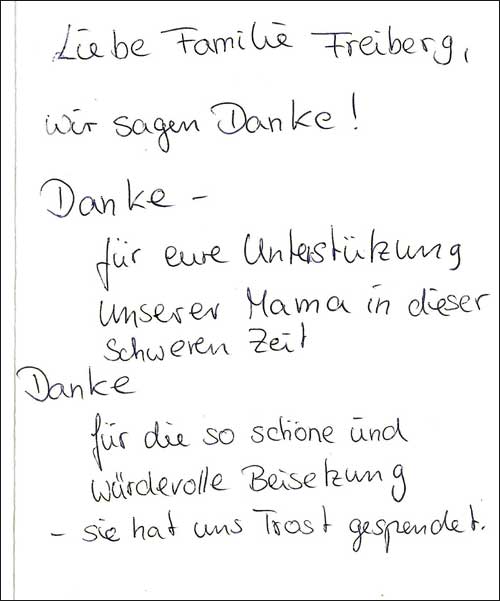 Liebe Familie Freiberg,
wir sagen Danke!
Danke -
für eure Unterstützung
unserer Mama in dieser
schweren Zeit
Danke
für die so schöne und
würdevolle Beisetzung
- sie hat uns Trost gespendet.